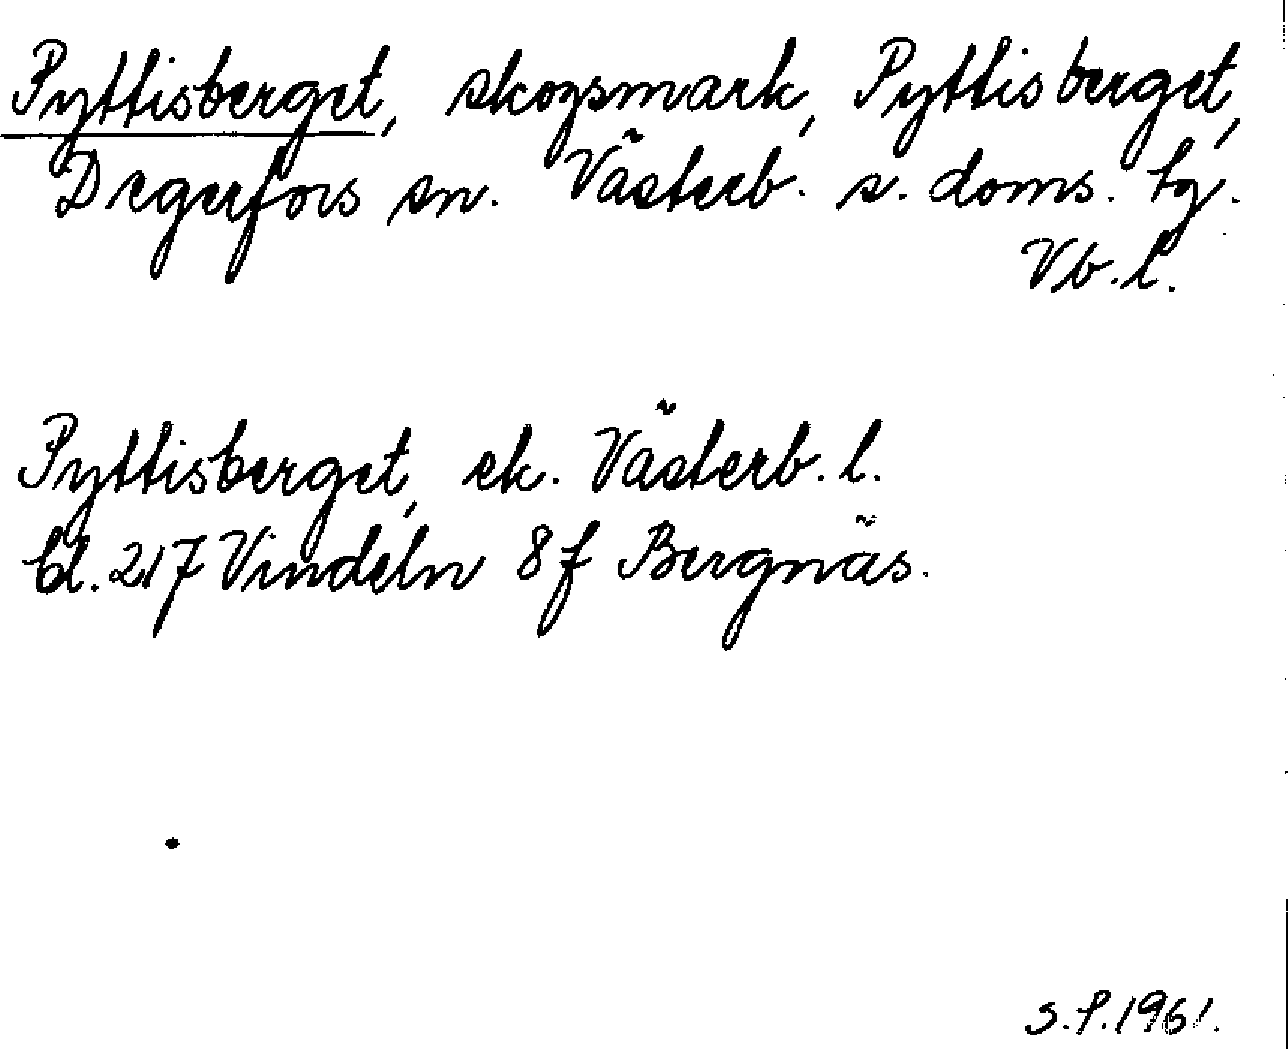 Pyttisberget, skogsmark, Pyttisberget,
Degerfors sn. Västerb. s. doms. tg.
Vb.l.
Pyttisberget, ek. Västerb. l.
bl. 217 Vindeln 8f Bergnäs.
S.P.1961.